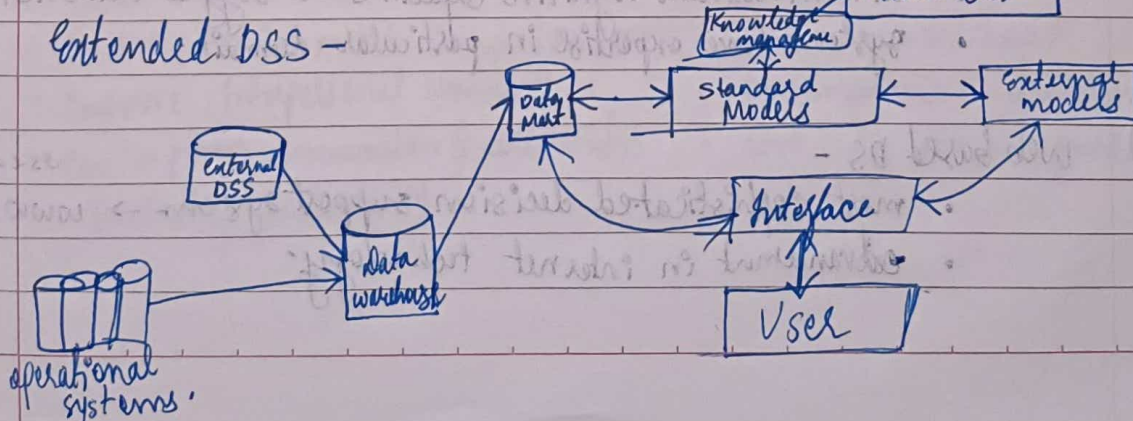 Extended DSS -
Knowledge
manageme
Data
Mart
Standard
Models
External
models
External
DSS
Interface
Data
warehouse
User
operational
systems.